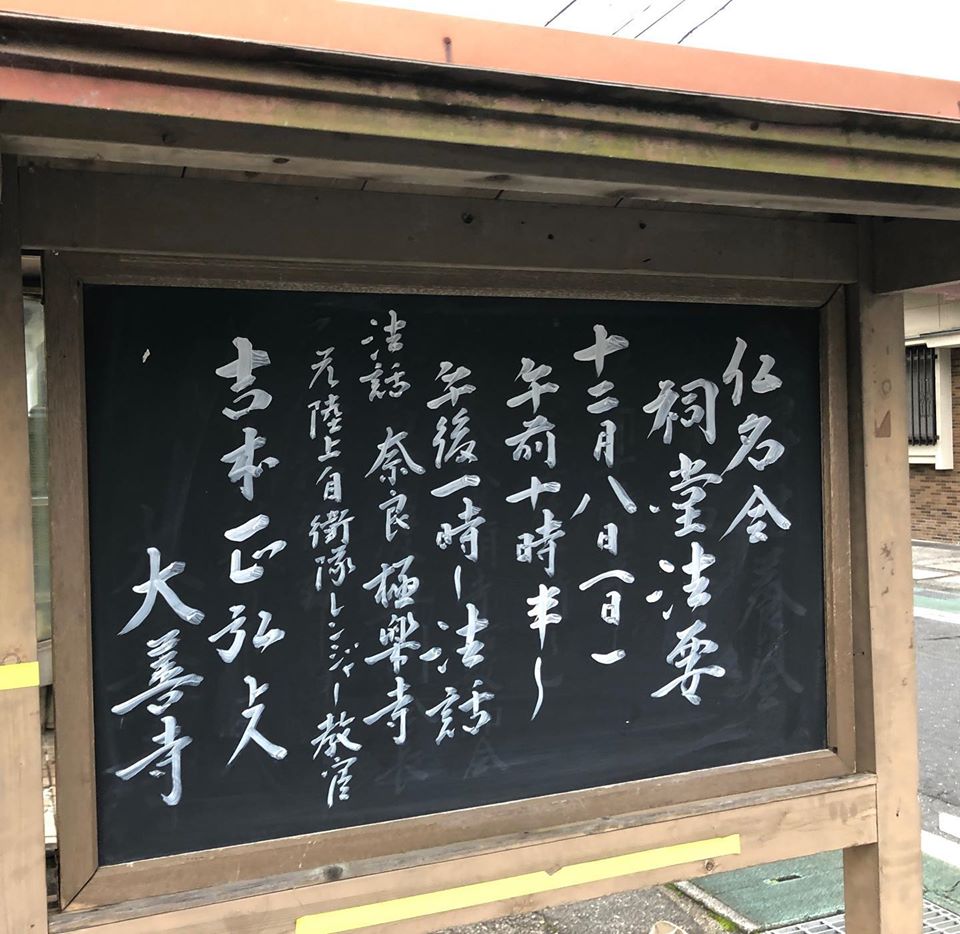 仏名会
祠堂法要
十二月八日（日）
午前十時半〜
午後一時〜法話
法話 奈良 極楽寺
元陸上自衛隊レンジャー教官
吉本正弘上人
大善寺